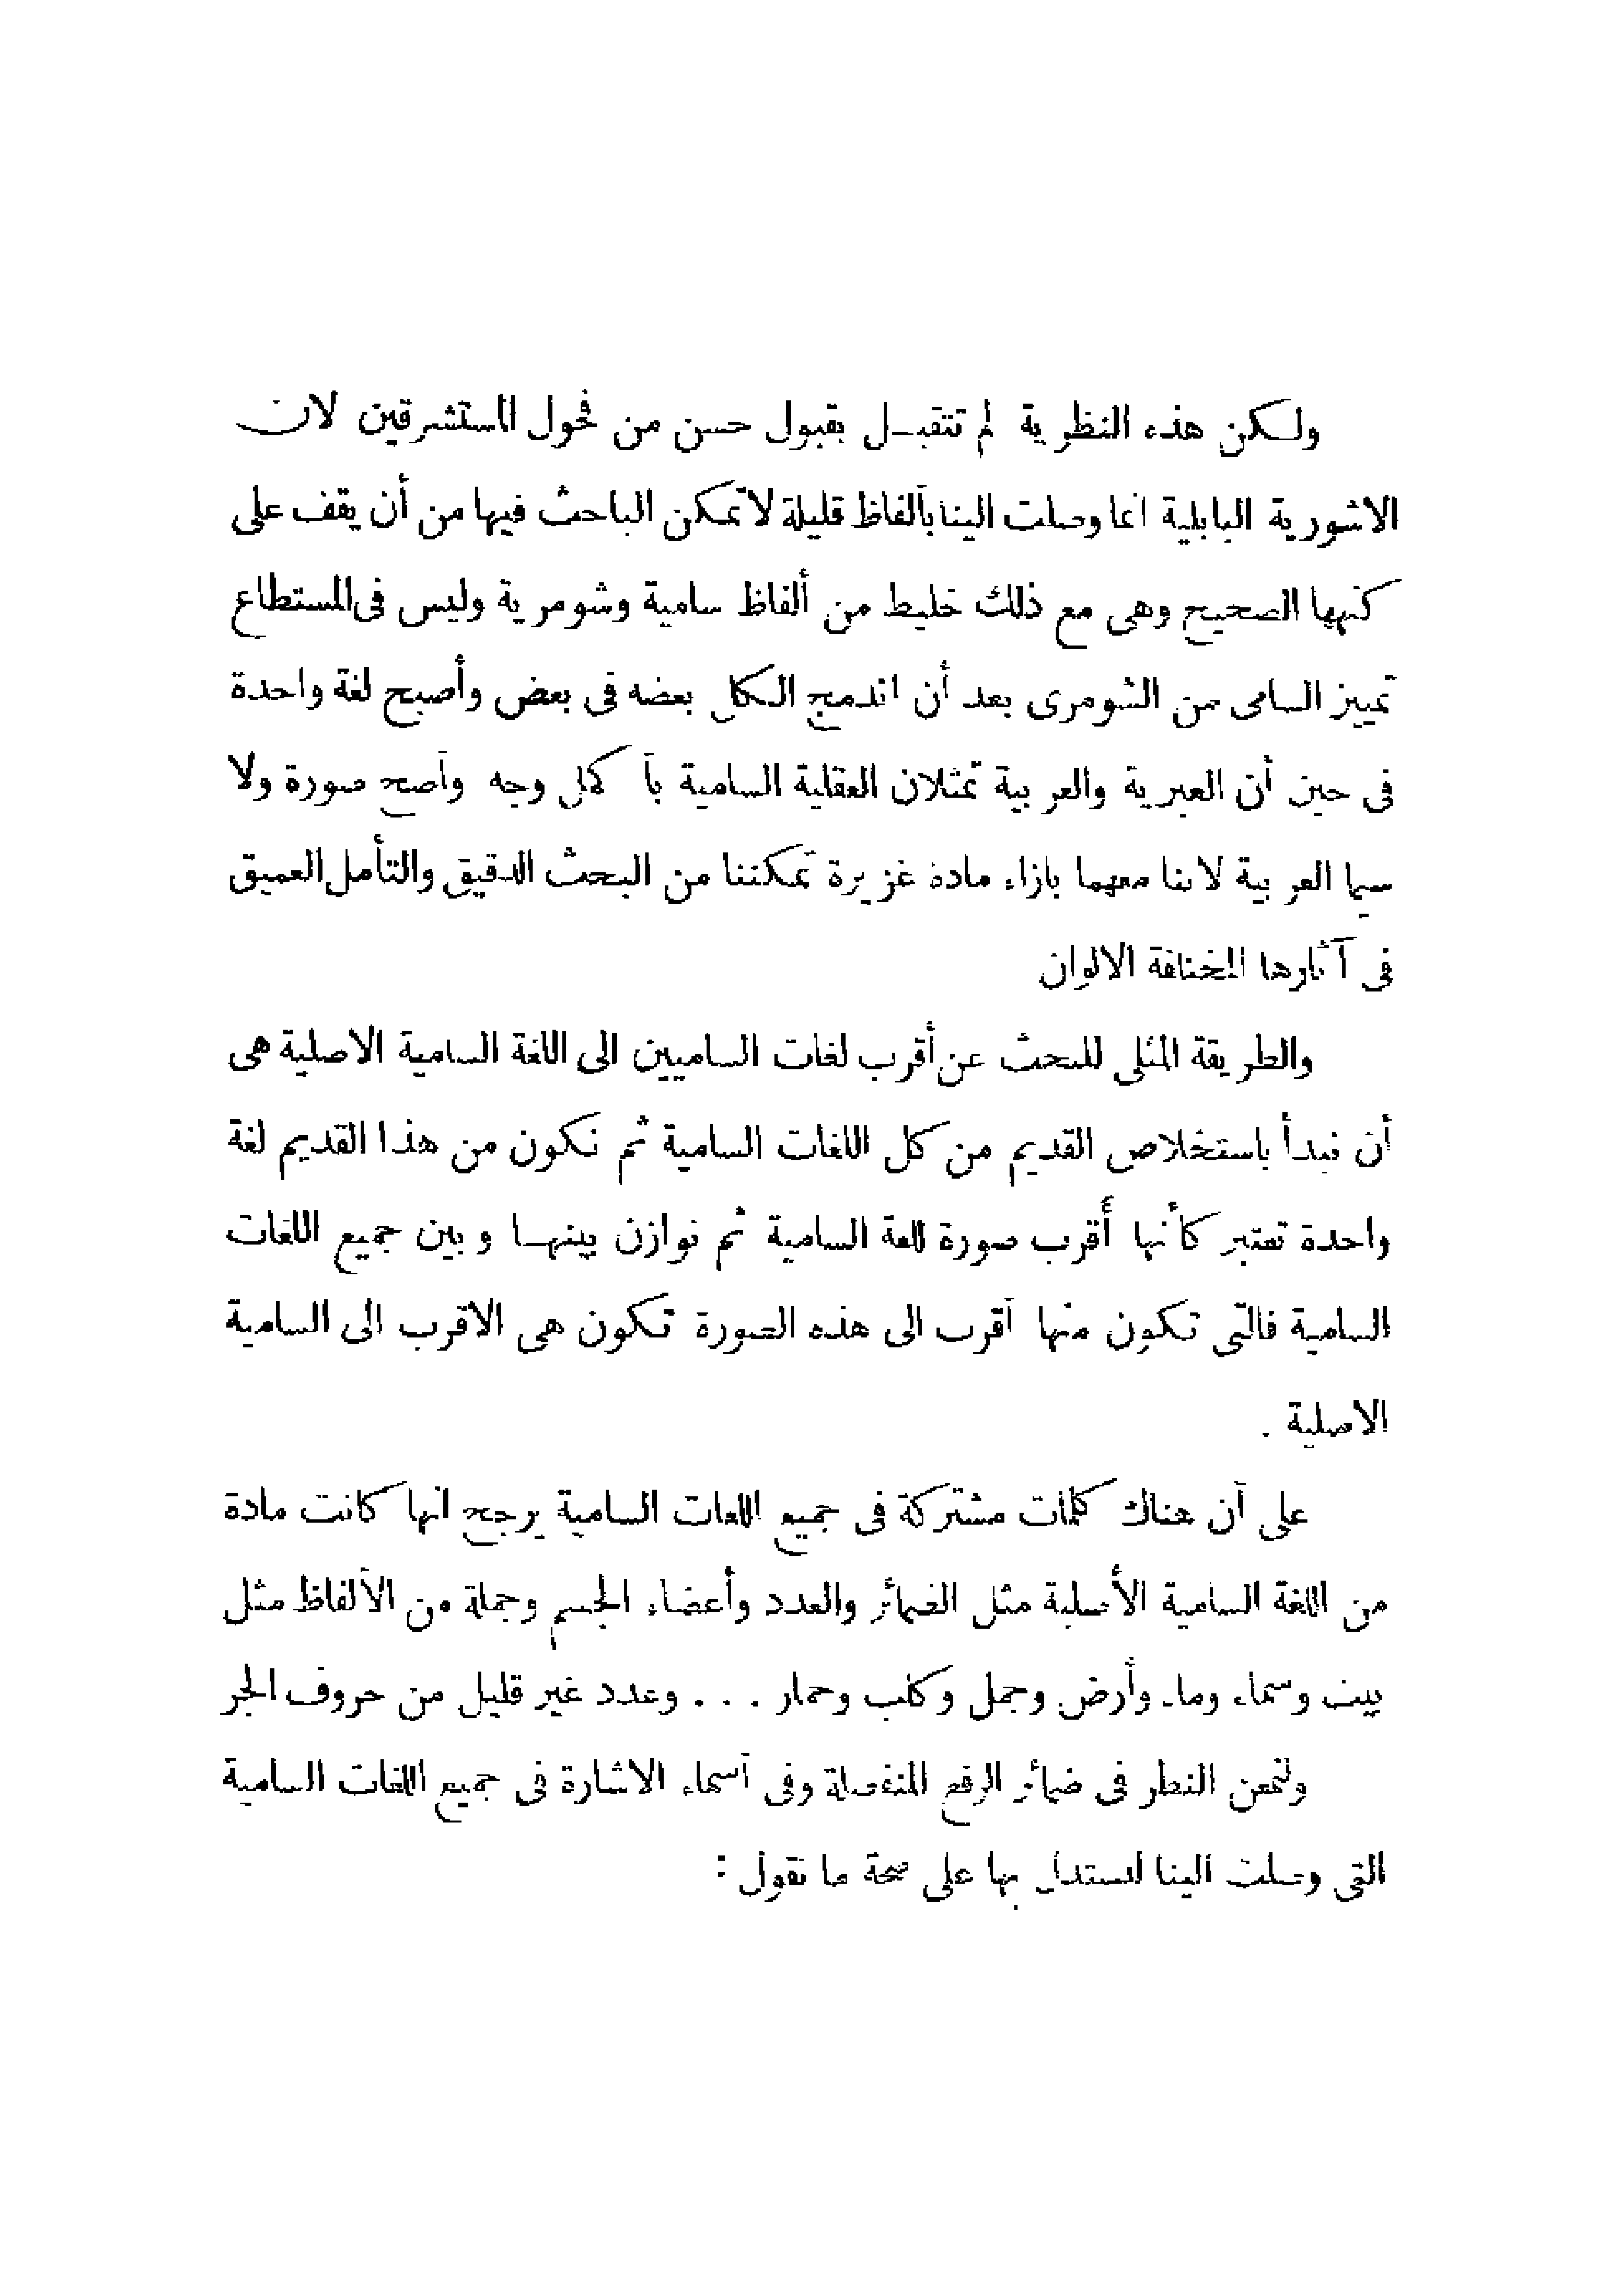 ولكن هذه النظرية لم تتقبل بقبول حسن من فحول المستشرقين لان
الاشورية البابلية انما وصلت الينا بألفاظ قليلة لا تمكن الباحث فيها من أن يقف على
كنهها الصحيح وهى مع ذلك خليط من ألفاظ سامية وشومرية وليس فى المستطاع
تمييز السامى من الشومرى بعد أن اندمج الكل بعضه فى بعض وأصبح لغة واحدة
فى حين أن العبرية والعربية تمثلان العقلية السامية بأكمل وجه وأصح صورة ولا
سيما العربية لاننا معهما بازاء مادة غزيرة تمكننا من البحث الدقيق والتأمل العميق
فى آثارها المختلفة الالوان
والطريقة المثلى للبحث عن أقرب لغات الساميين الى اللغة السامية الاصلية هى
أن نبدأ باستخلاص القديم من كل اللغات السامية ثم نكون من هذا القديم لغة
واحدة تعتبر كأنها أقرب صورة للغة السامية ثم نوازن بينها وبين جميع اللغات
السامية فالتى تكون منها أقرب الى هذه الصورة تكون هى الاقرب الى السامية
الاصلية .
على أن هناك كلمات مشتركة فى جميع اللغات السامية يرجح انها كانت مادة
من اللغة السامية الأصلية مثل الضمائر والعدد وأعضاء الجسم وجملة من الألفاظ مثل
بيت وسماء وماء وأرض وجمل وكلب وحمار . . . وعدد غير قليل من حروف الجر
ولنمعن النظر فى ضمائر الرفع المنفصلة وفى أسماء الاشارة فى جميع اللغات السامية
التى وصلت الينا لنستدل بها على صحة ما نقول :